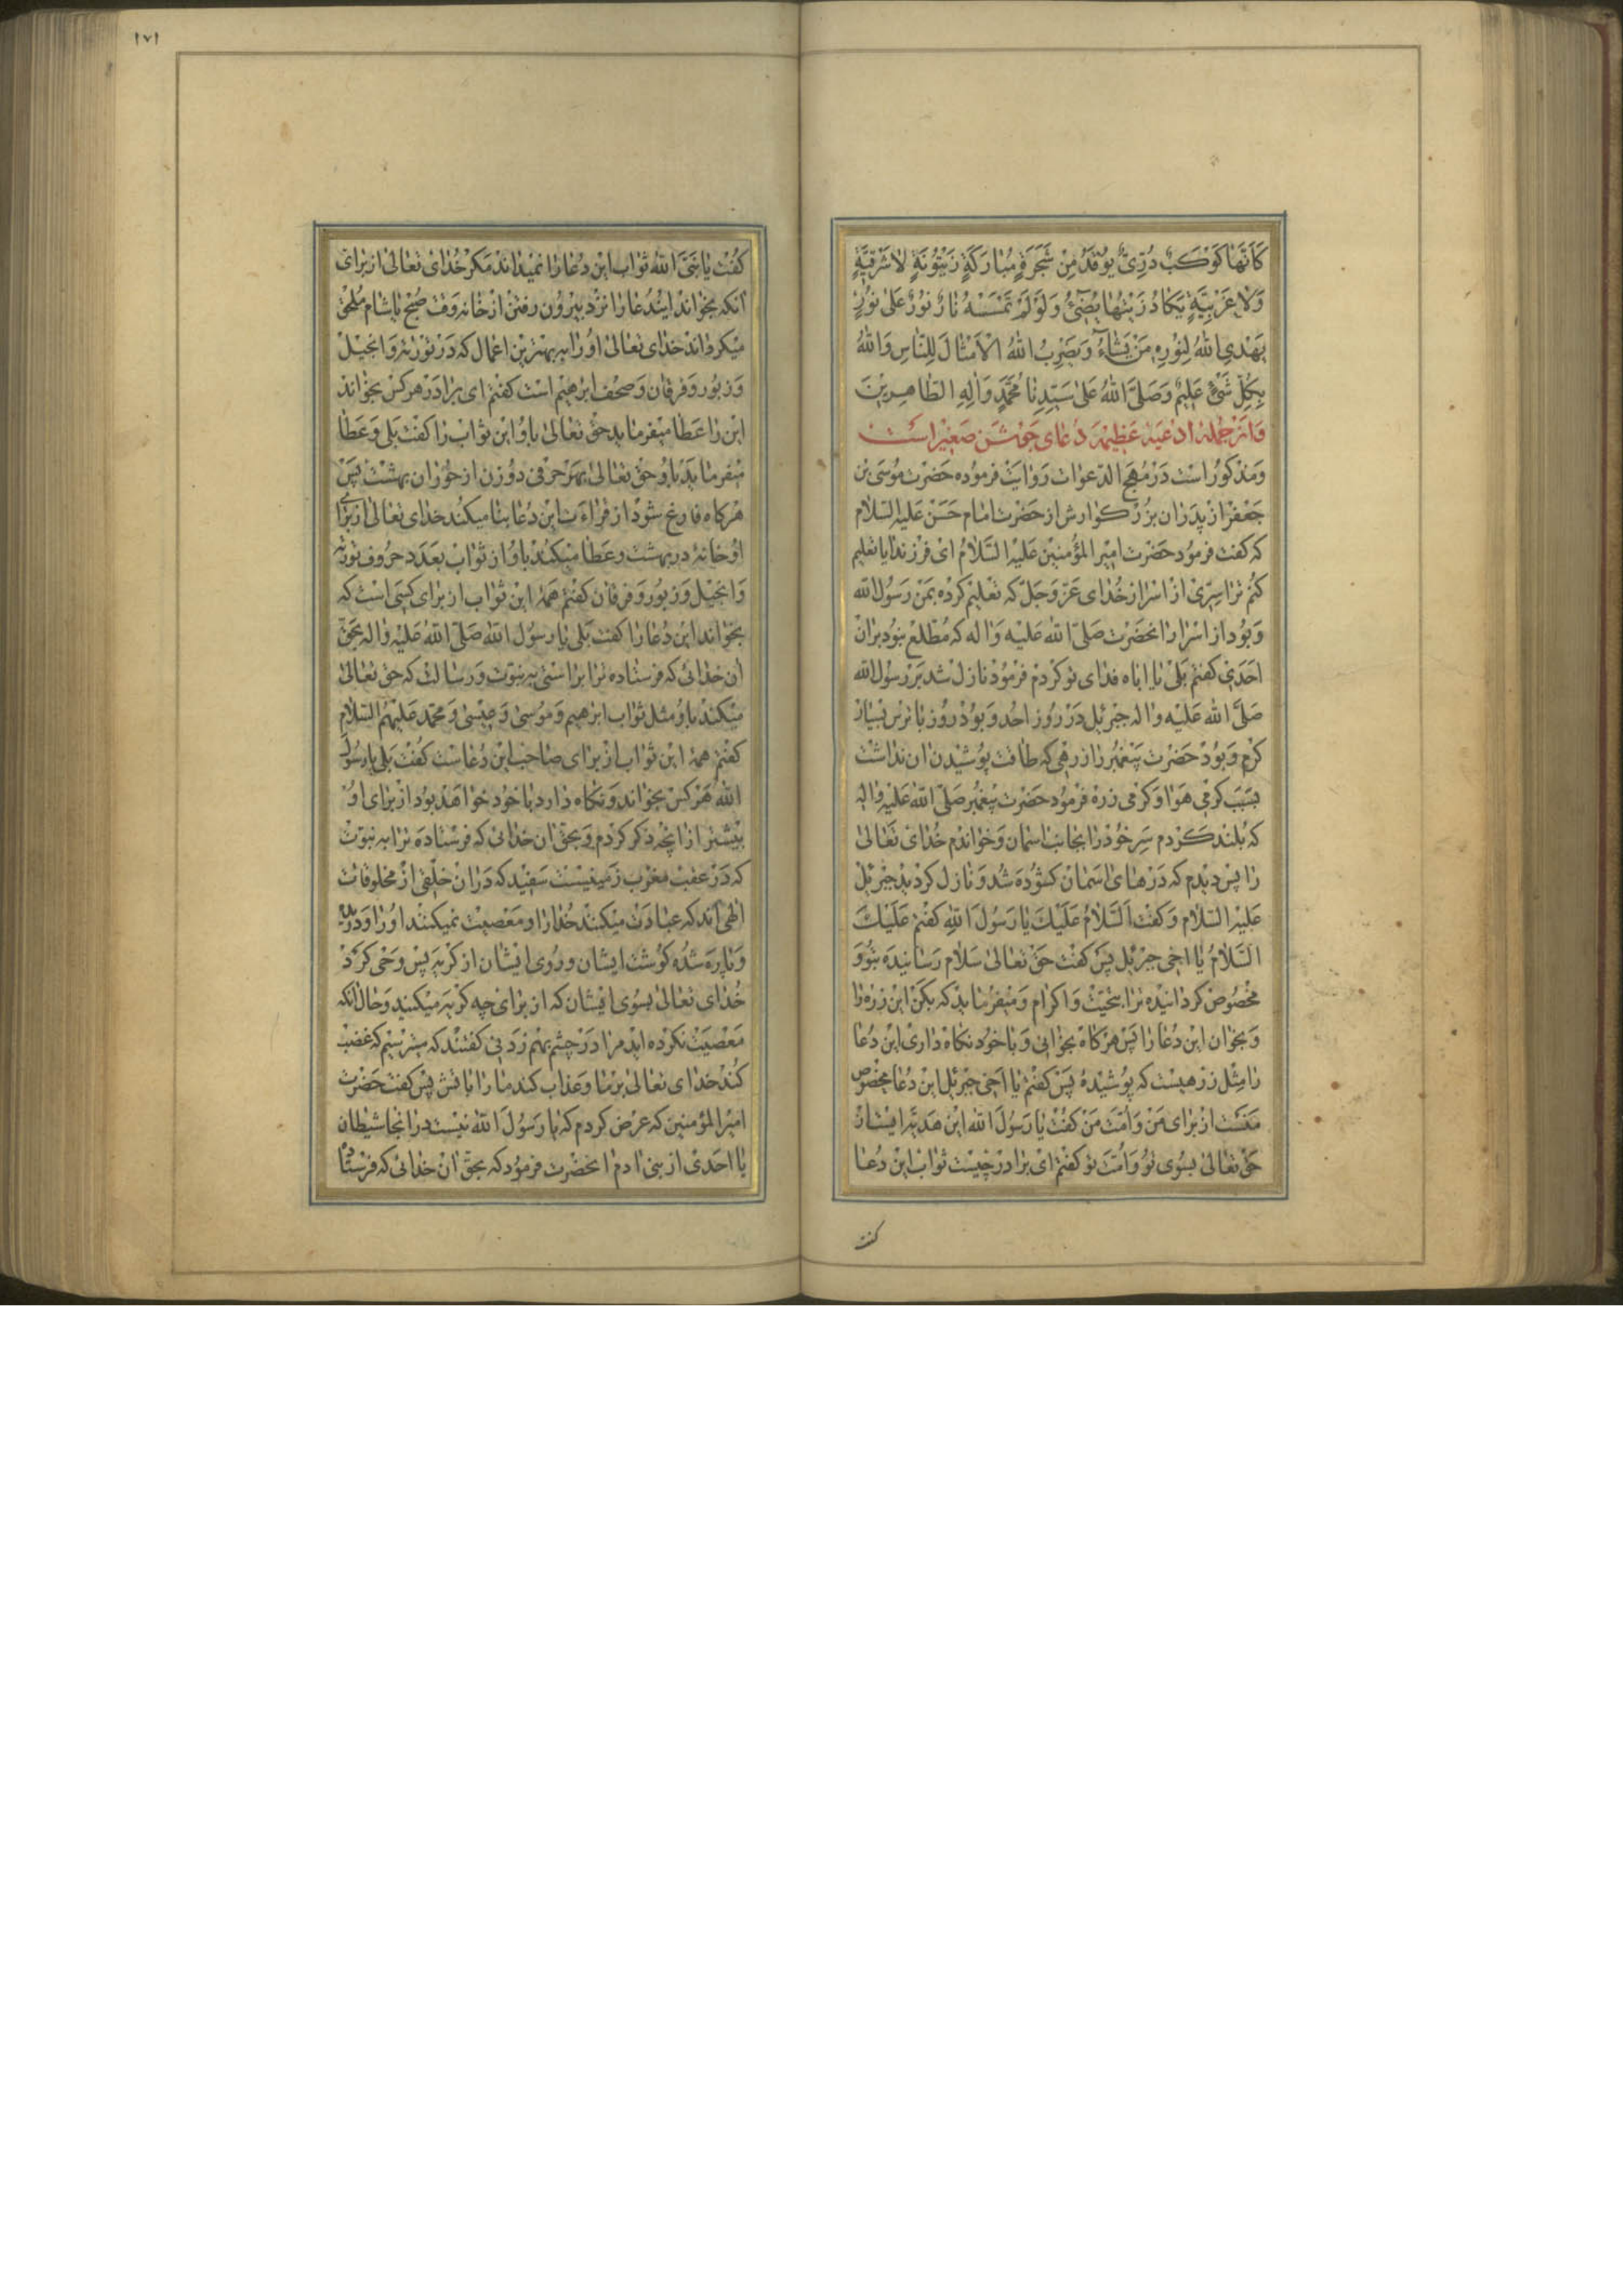 كَاَنَّهَا كَوْكَبٌ دُرِّىٌّ يُوْقَدُ مِنْ شَجَرَةٍ مُبَارَكَةٍ زَيْتُوْنَةٍ لاٰ شَرْقِيَّةٍ
وَلاٰ غَرْبِيَّةٍ يَكَادُ زَيْتُهَا يُضِىۤءُ وَلَوْ لَمْ تَمْسَسْهُ نَارٌ نُوْرٌ عَلىٰ نُوْرٍ
يَهْدِى اللهُ لِنُوْرِهٖ مَنْ يَشَاۤءُ وَيَضْرِبُ اللهُ الْاَمْثَالَ لِلنَّاسِ وَاللهُ
بِكُلِّ شَىْءٍ عَلِيْمٌ وَصَلَّى اللهُ عَلىٰ سَيِّدِنَا مُحَمَّدٍ وَاٰلِهِ الطَّاهِرِيْنَ
وَاز جمله ادعيهٔ عظيمه دعاى جوشن صغير است
ومذكور است در مهج الدعوات روايت فرموده حضرت موسى بن
جعفر از پدران بزركوارش از حضرت امام حسن عليه السلام
كه كفت فرمود حضرت امير المؤمنين عليه السلام اى فرزند ايا تعليم
كنم ترا سرّى از اسرار خداى عزّ وجلّ كه تعليم كرده بمن رسول الله
وبود از اسرار انحضرت صلى الله عليه واله كه مطلع نبود بران
احدى كفتم بلى يا اباه فداى تو كردم فرمود نازل شد بر رسول الله
صلى الله عليه واله جبرئيل در روز احد وبود روز باترس بسيار
كرم وبود حضرت پيغمبر را زرهى كه طاقت پوشيدن ان نداشت
بسبب كرمى هوا وكرمى زره فرمود حضرت پيغمبر صلى الله عليه واله
كه بلند كردم سر خود را بجانب اسمان وخواندم خداى تعالى
را پس ديدم كه درهاى اسمان كشوده شد ونازل كرديد جبرئيل
عليه السلام وكفت السلام عليك يا رسول الله كفتم عليك
السلام يا اخى جبرئيل پس كفت حق تعالى سلام رسانيده بتو و
مخصوص كردانيده ترا بتحيت واكرام وميفرمايد كه بكن اين زره را
وبخوان اين دعا را پس هركاه بخوانى وباخود نكاه دارى اين دعا
را مثل زرهيست كه پوشيدهٔ پس كفتم يا اخى جبرئيل اين دعا مخصوص
منست از براى من وامت من كفت يا رسول الله اين هديه ايست از
حق تعالى بسوى تو وامت تو كفتم اى برادر چيست ثواب اين دعا
كفت
١٧١
كفت يا نبى الله ثواب اين دعا را نميداند مكر خداى تعالى از براى
انكه بخواند ايندعا را نزد بيرون رفتن از خانه وقت صبح يا شام ملحق
ميكرداند خداى تعالى او را به بهترين اعمال كه در تورية وانجيل
وزبور وفرقان وصحف ابرهيم است كفتم اى برادر هر كس بخواند
اين را عطا ميفرمايد حق تعالى باو اين ثواب را كفت بلى وعطا
ميفرمايد باو حق تعالى بهر حرفى دو زن از حوران بهشت پس
هركاه فارغ شود از قراءت اين دعا بنا ميكند خداى تعالى از براى
او خانهٔ در بهشت وعطا ميكند باو از ثواب بعدد حروف تورية
وانجيل وزبور وفرقان كفتم همهٔ اين ثواب از براى كسى است كه
بخواند اين دعا را كفت بلى يا رسول الله صلى الله عليه واله بحق
ان خدائى كه فرستاده ترا براستى به نبوت ورسالت كه حق تعالى
ميكند باو مثل ثواب ابرهيم وموسى وعيسى ومحمد عليهم السلام
كفتم همهٔ اين ثواب از براى صاحب اين دعاست كفت بلى يا رسول
الله هر كس بخواند ونكاه دارد با خود خواهد بود از براى او
بيشتر از انچه ذكر كردم وبحق ان خدائى كه فرستاده ترا به نبوت
كه در عقب مغرب زمينيست سفيد كه دران خلقى از مخلوقات
الهى اند كه عبادت ميكنند خدا را ومعصيت نميكنند او را ودريده
وپاره شده كوشت ايشان وروى ايشان از كريه پس وحى كرد
خداى تعالى بسوى ايشان كه از براى چه كريه ميكنيد وحال انكه
معصيت نكرده ايد مرا در چشم بهم زدنى كفتند كه ميترسيم كه غضب
كند خداى تعالى برما وعذاب كند ما را باتش پس كفت حضرت
امير المؤمنين كه عرض كردم كه يا رسول الله نيست در انجا شيطان
يا احدى از بنى ادم انحضرت فرمود كه بحق ان خدائى كه فرستاده